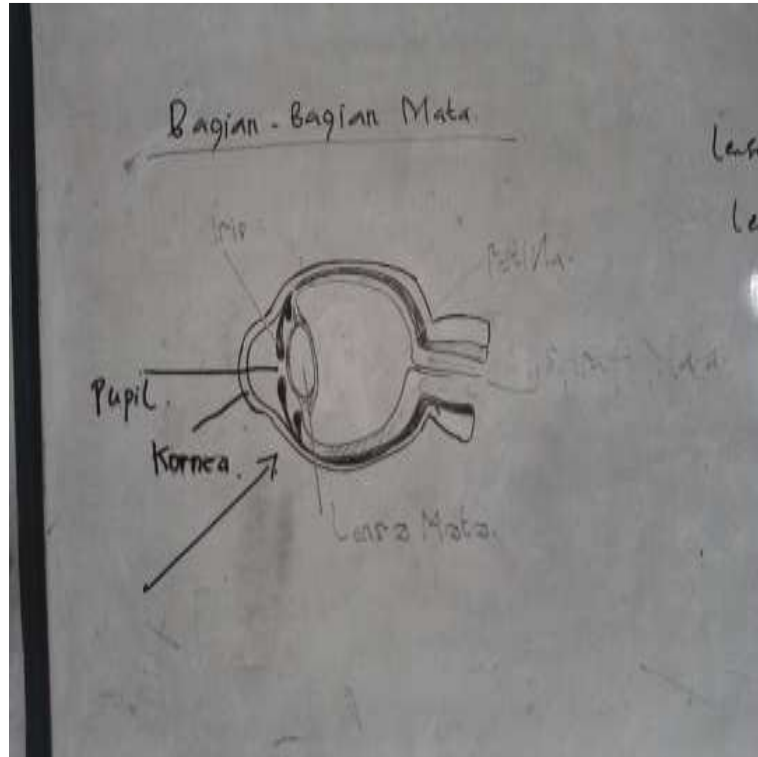 Bagian - Bagian Mata.
Iris
Retina.
Pupil.
Kornea.
Lensa Mata.